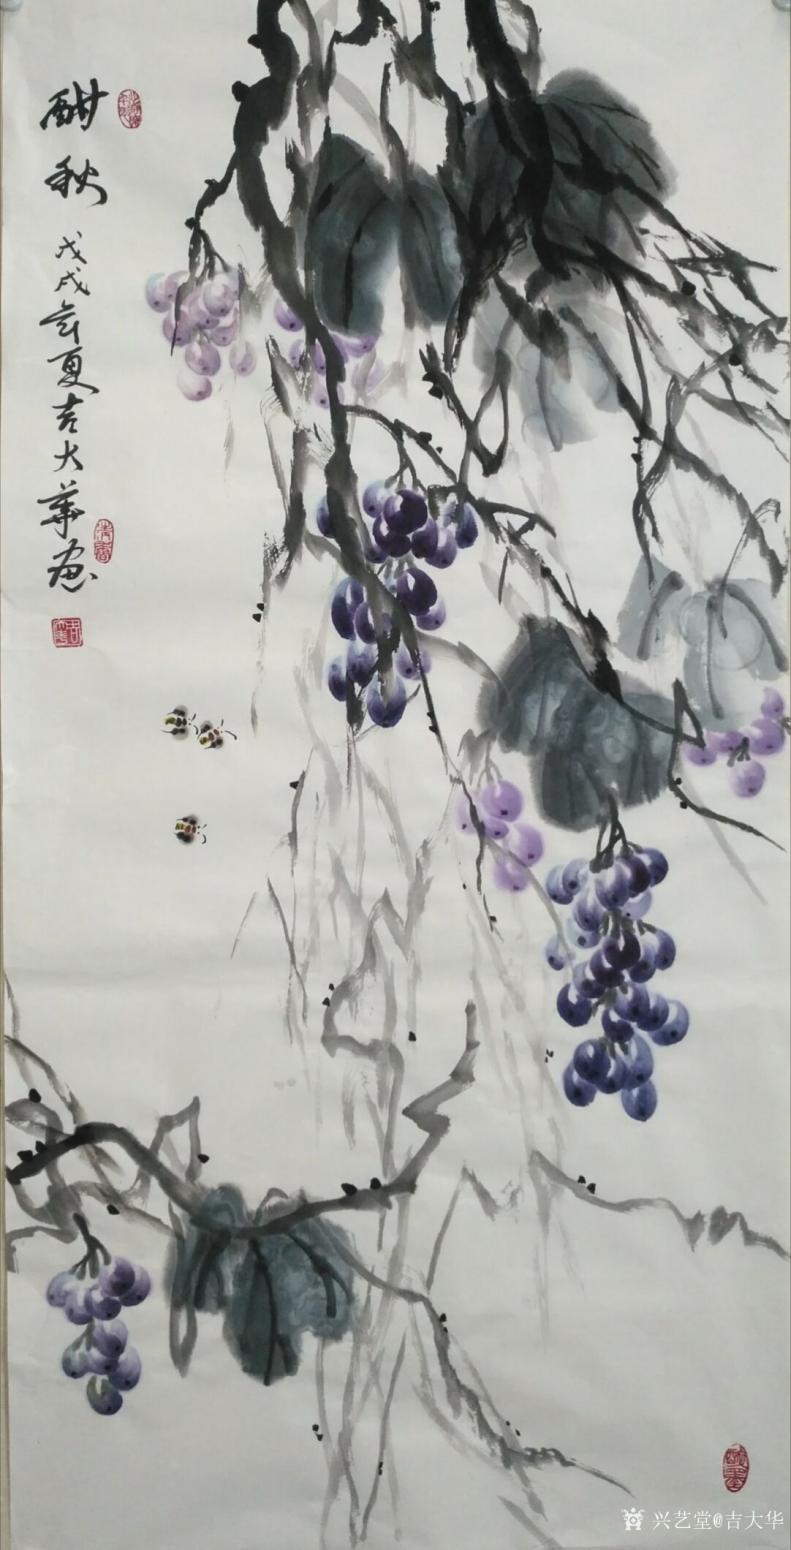 酣秋
戊戌年夏吉大华画
兴艺堂@吉大华